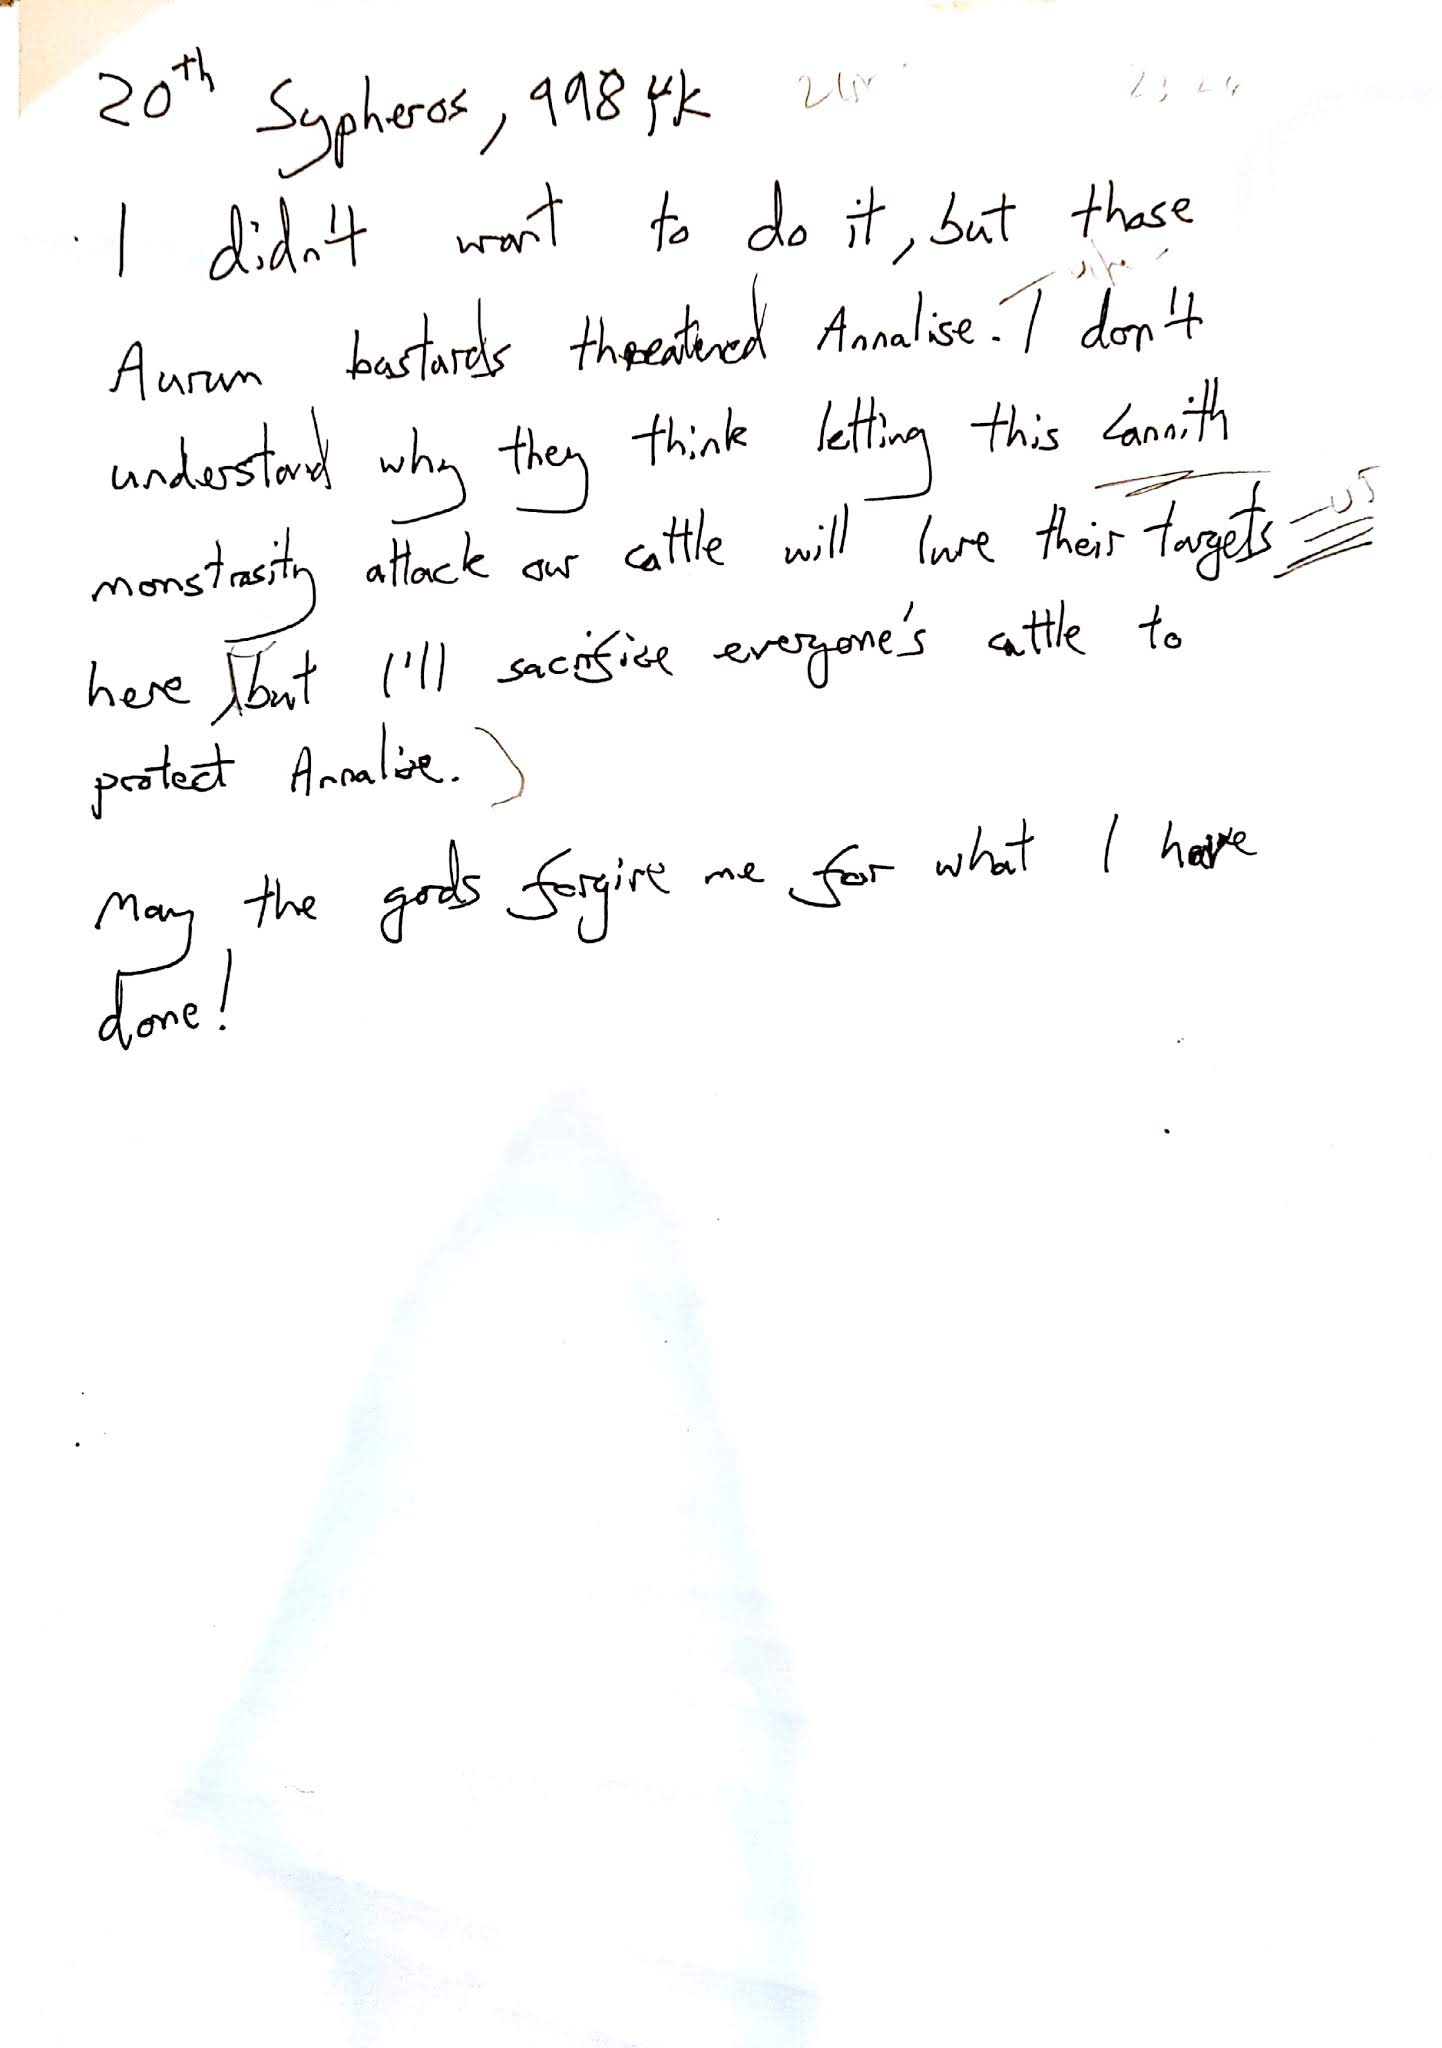 20th Sypheros, 998 YK 21st 23 24
I didn't want to do it, but those
wife
Aurum bastards threatened Annalise. I don't
understand why they think letting this Cannith
monstrosity attack our cattle will lure their targets = US
here, but I'll sacrifice everyone's cattle to
protect Annalise.)
May the gods forgive me for what I have
done!